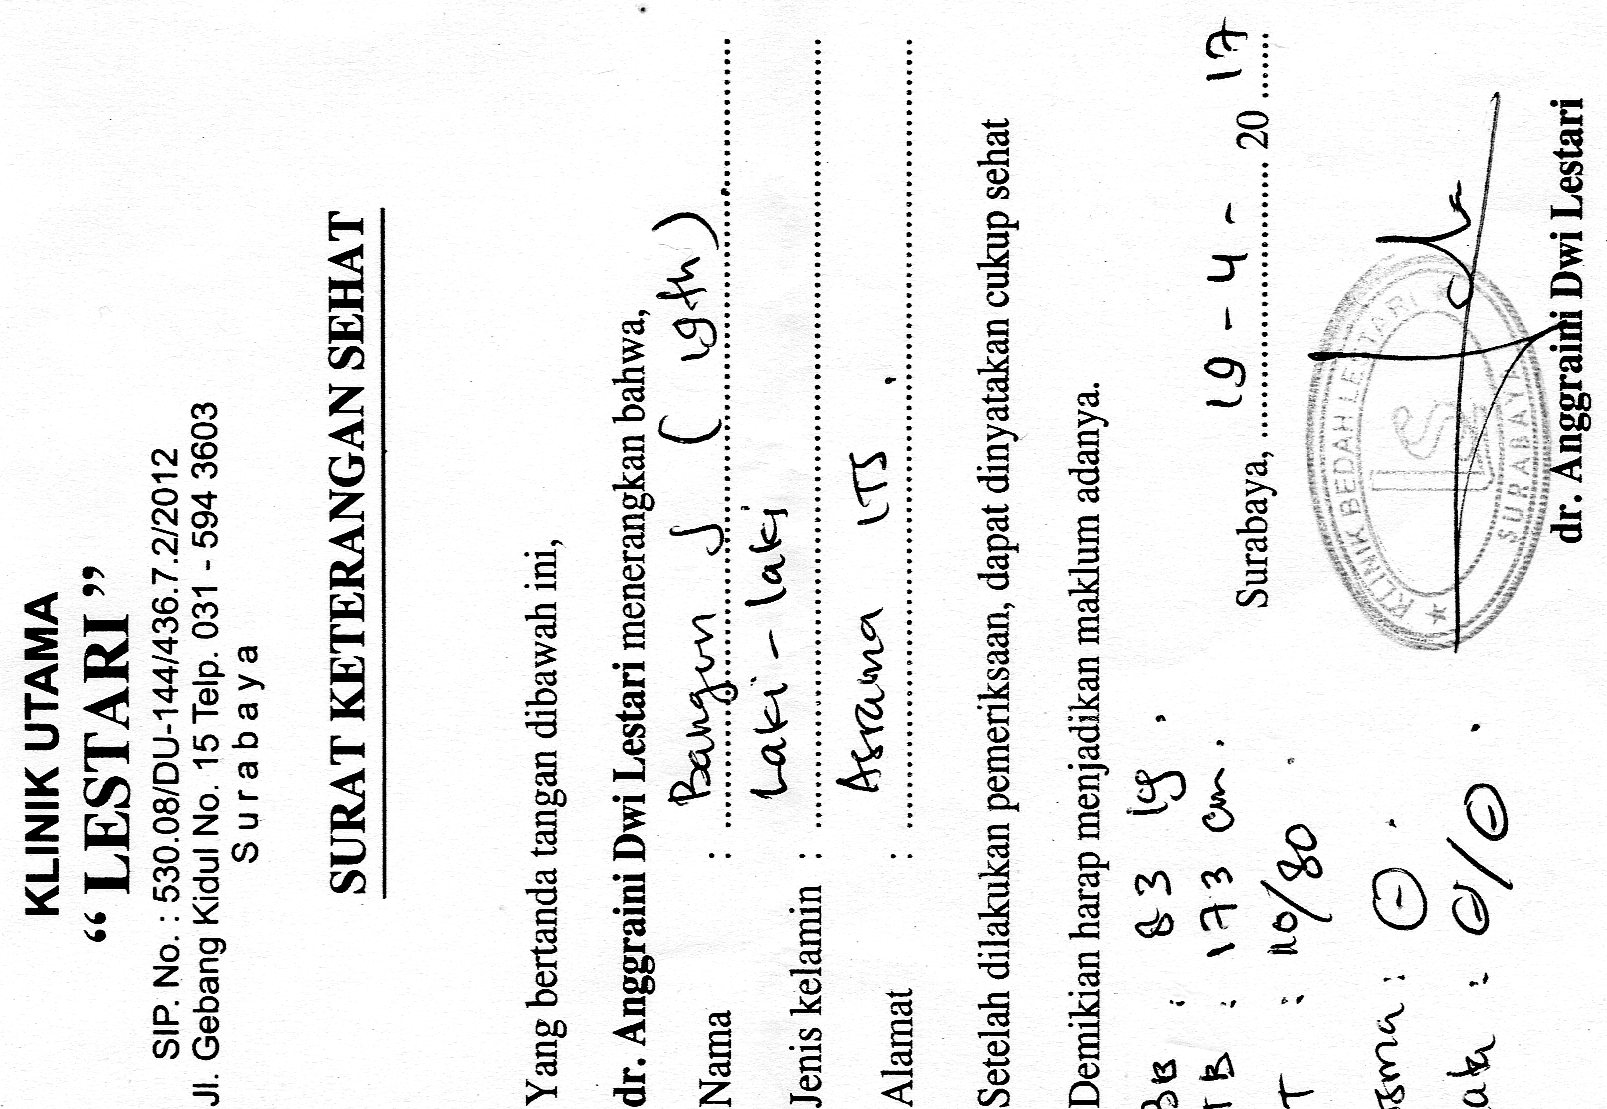 KLINIK UTAMA
“ LESTARI ”
SIP. No. : 530.08/DU-144/436.7.2/2012
Jl. Gebang Kidul No. 15 Telp. 031 - 594 3603
Surabaya
SURAT KETERANGAN SEHAT
Yang bertanda tangan dibawah ini,
dr. Anggraini Dwi Lestari menerangkan bahwa,
Nama : Bangun S ( 19th )
Jenis kelamin : Laki - laki
Alamat : Asrama ITS
Setelah dilakukan pemeriksaan, dapat dinyatakan cukup sehat
Demikian harap menjadikan maklum adanya.
BB : 83 kg
TB : 173 cm
T : 110/80
Surabaya, 19 - 4 - 20 17
sma : (-)
ata : (-)/(-)
KLINIK BEDAH LESTARI
LS
SURABAYA
dr. Anggraini Dwi Lestari